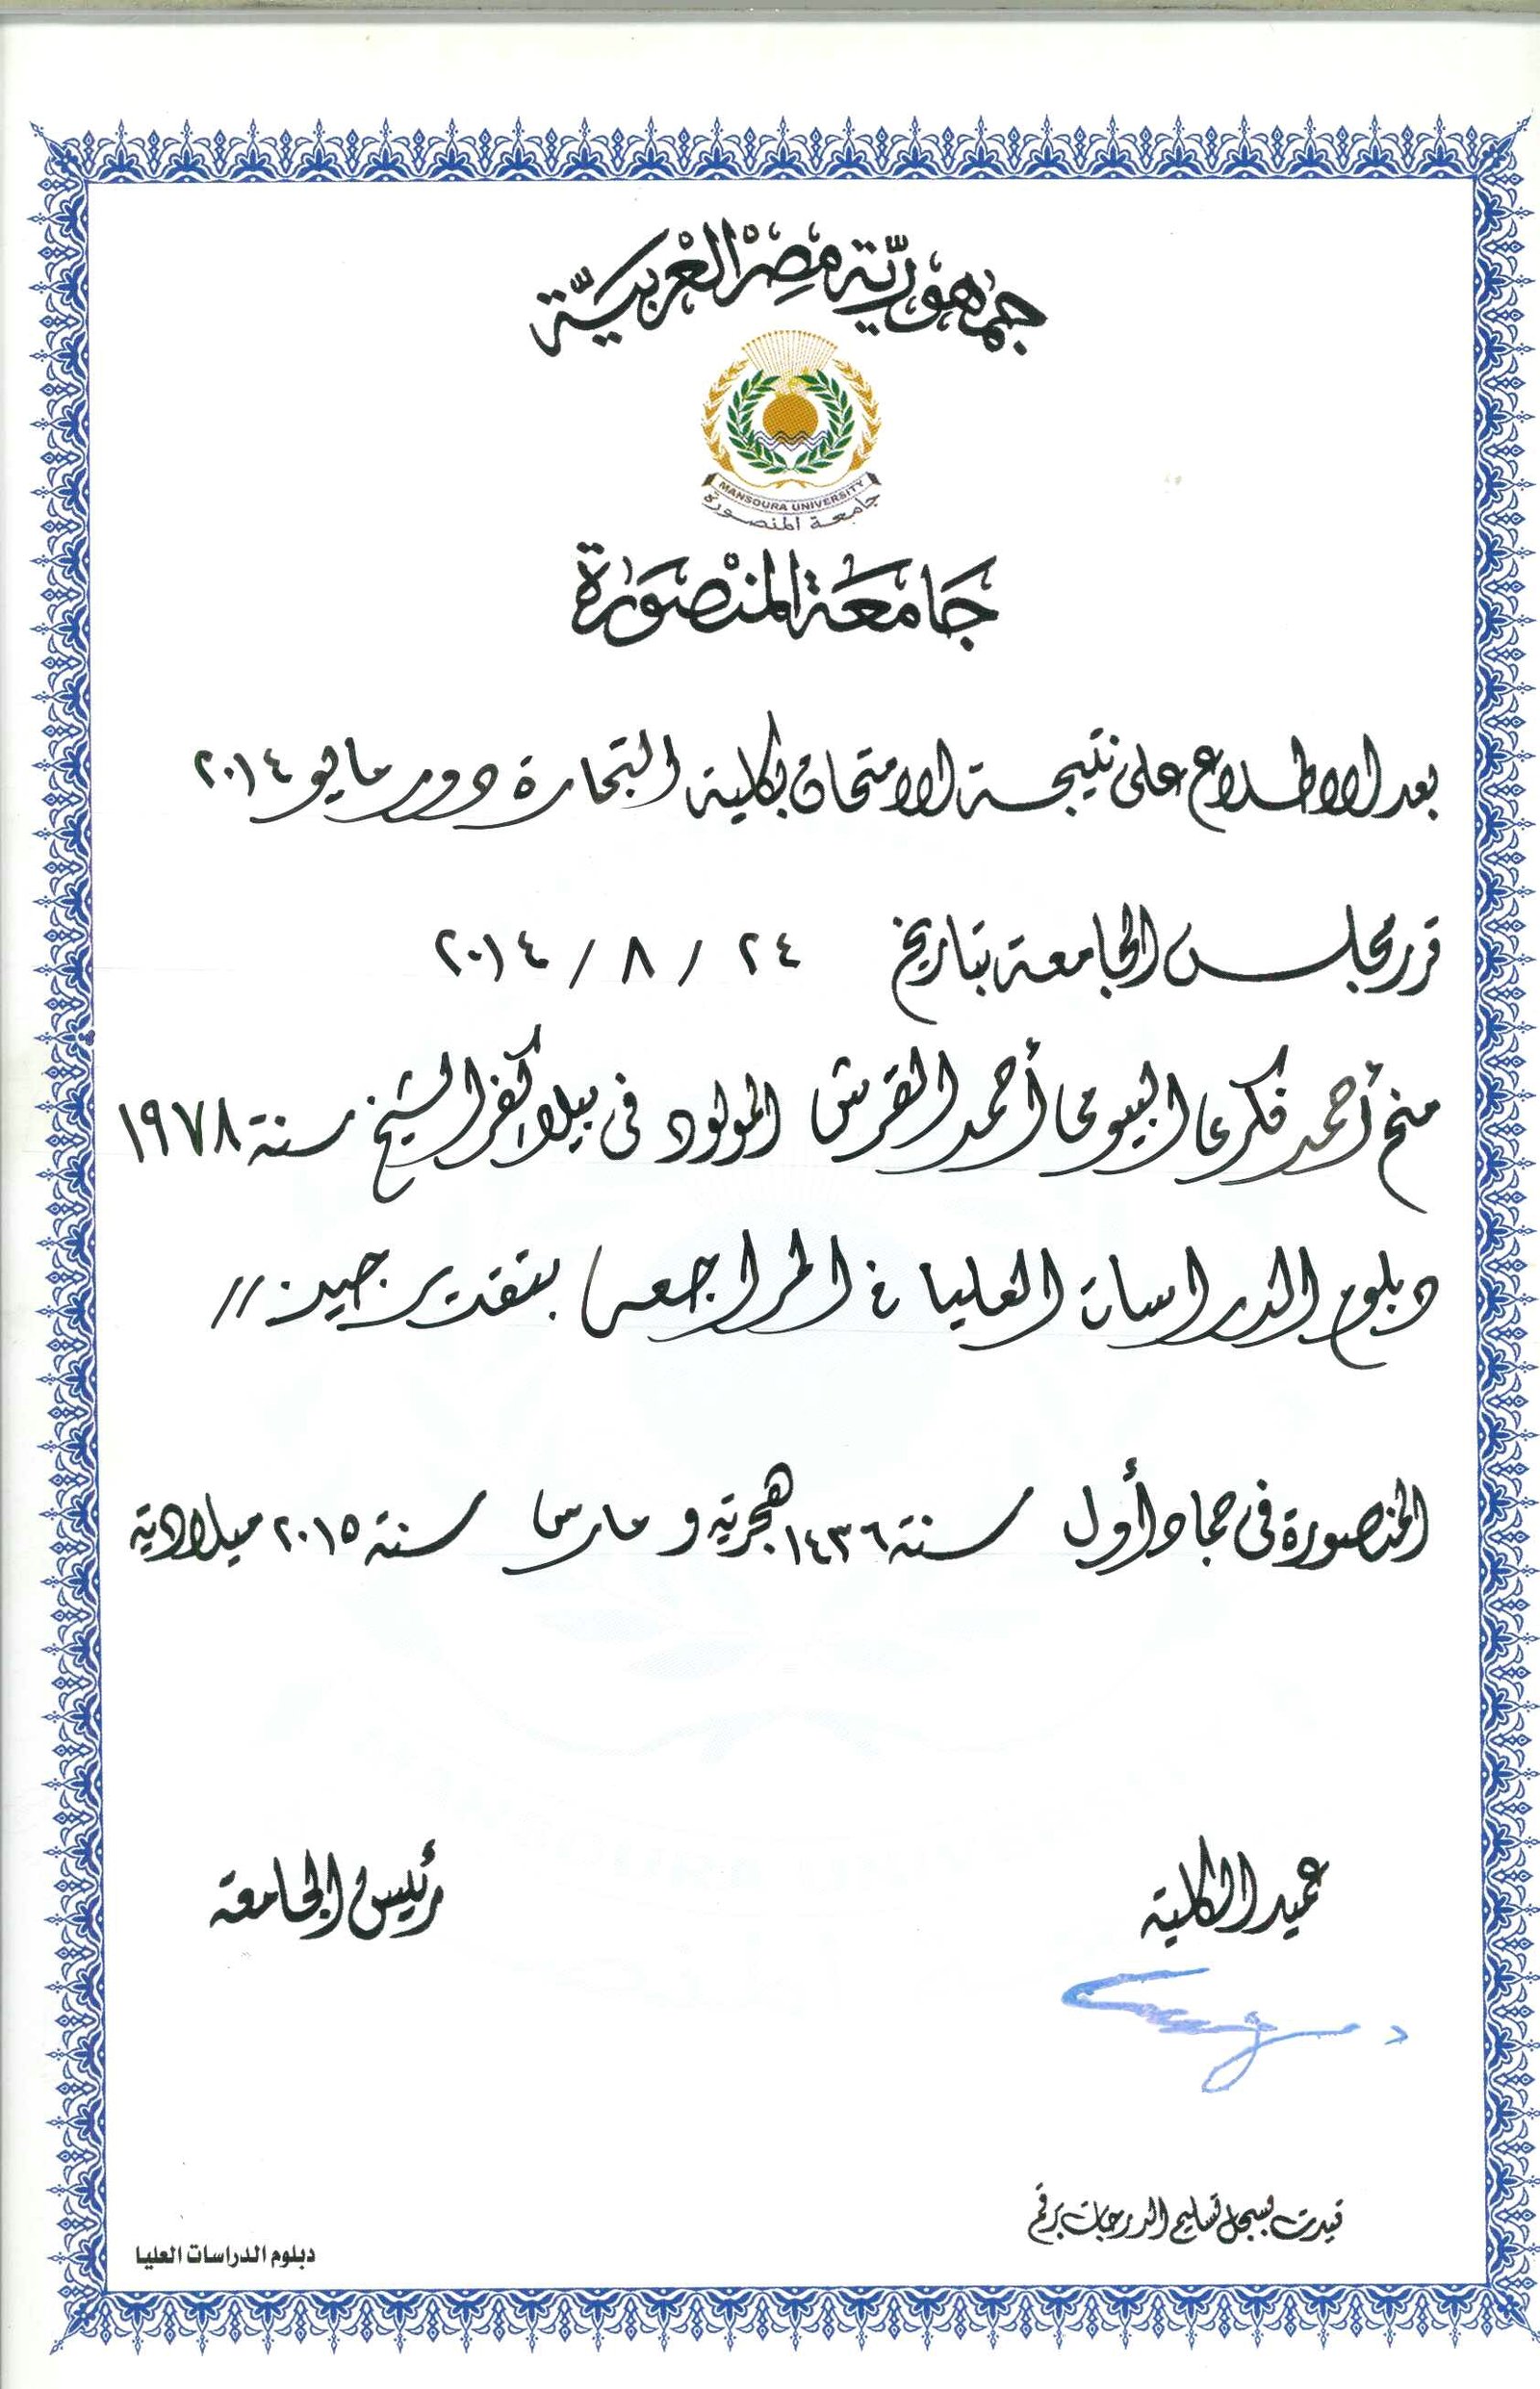 جمهورية مصر العربية
MANSOURA UNIVERSITY
جامعة المنصورة
جامعة المنصورة
بعد الاطلاع على نتيجة الامتحان بكلية التجارة دور مايو ٢٠١٤
قرر مجلس الجامعة بتاريخ ٢٤ / ٨ / ٢٠١٤
منح أحمد فكرى البيومى أحمد القرش المولود فى بيلا كفر الشيخ سنة ١٩٧٨
دبلوم الدراسات العليا فى المراجعه بتقدير جيد //
المنصورة فى جماد أول سنة ١٤٣٦ هجرية و مارس سنة ٢٠١٥ ميلادية
عميد الكلية
رئيس الجامعة
قيدت بسجل تسليم الدرجات برقم
دبلوم الدراسات العليا